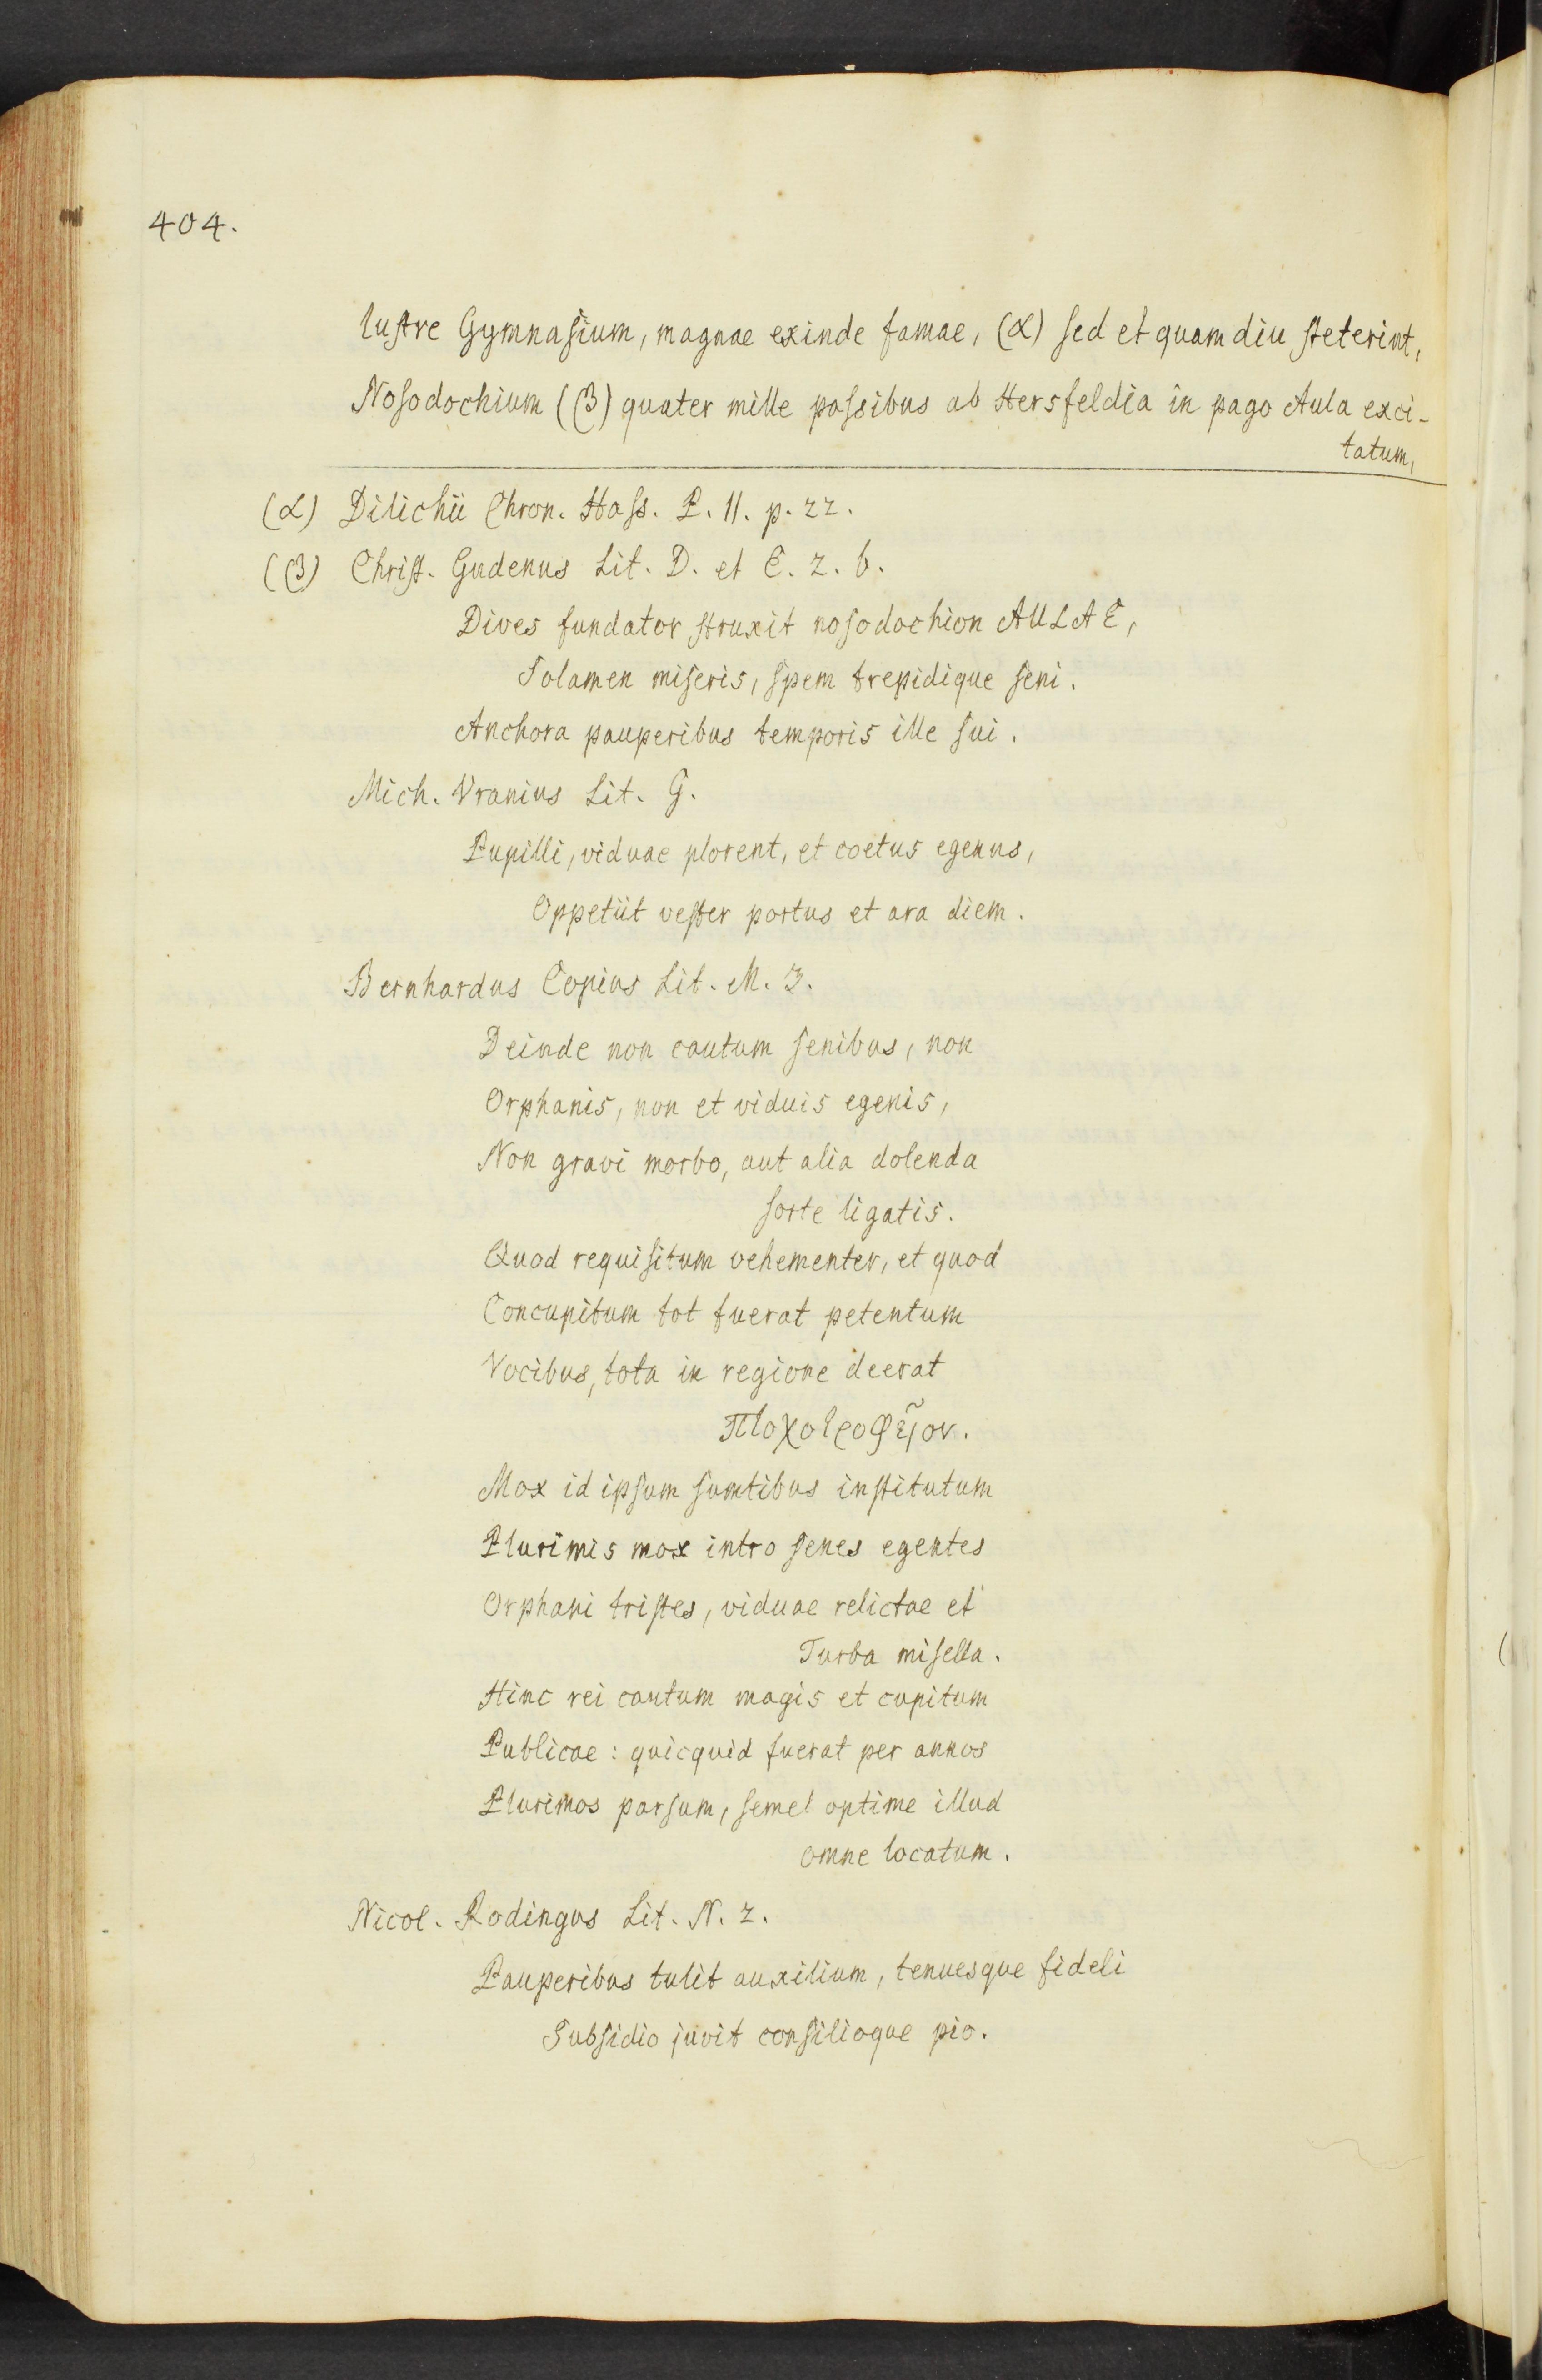 404.
lustre Gymnasium, magnae exinde famae, (α) sed et quam diu steterint,
Nosodochium (β) quater mille passibus ab Hersfeldia in pago Aula exci-
tatum,
(α) Dilichii Chron. Hass. P. II. p. 22.
(β) Christ. Gudenus Lit. D. et E. 2. b.
Dives fundator struxit nosodochion AULAE,
Solamen miseris, spem trepidique seni.
Anchora pauperibus temporis ille sui.
Mich. Vranius Lit. G.
Pupilli, viduae plorent, et coetus egenus,
Oppetiit vester portus et ara diem.
Bernhardus Copius Lit. M. 3.
Deinde non cautum senibus, non
Orphanis, non et viduis egenis,
Non gravi morbo, aut alia dolenda
sorte ligatis.
Quod requisitum vehementer, et quod
Concupitum tot fuerat petentum
Vocibus, tota in regione deerat
Πτοχοτροφεῖον.
Mox id ipsum sumtibus institutum
Plurimis mox intro senes egentes
Orphani tristes, viduae relictae et
Turba misella.
Hinc rei cautum magis et cupitum
Publicae: quicquid fuerat per annos
Plurimos parsum, semel optime illud
omne locatum.
Nicol. Rodingus Lit. N. 2.
Pauperibus tulit auxilium, tenuesque fideli
Subsidio juvit consilioque pio.